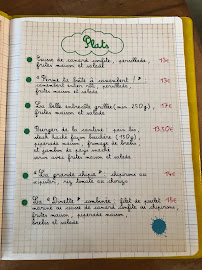 Plats
Cuisse de canard confite, persillade, 13€
frites maison et salade
"Ferme la boîte à camembert !" 13€
camembert entier rôti, persillade,
frites maison et salade
La belle entrecôte grillée (min 250g), 17€
frites maison et salade
Burger de la cantine : pain bio, 13.50€
steak haché façon bouchère (150g),
piperade maison, fromage de brebis
et jambon de pays séché
servi avec frites maison et salade
"La grande chipie" : chipirons au 14€
espelette, riz tomate au chorizo
La "Dinette" combinée : filet de poulet 15€
mariné ou cuisse de canard confite ou chipirons,
frites maison, piperade maison,
brebis et salade